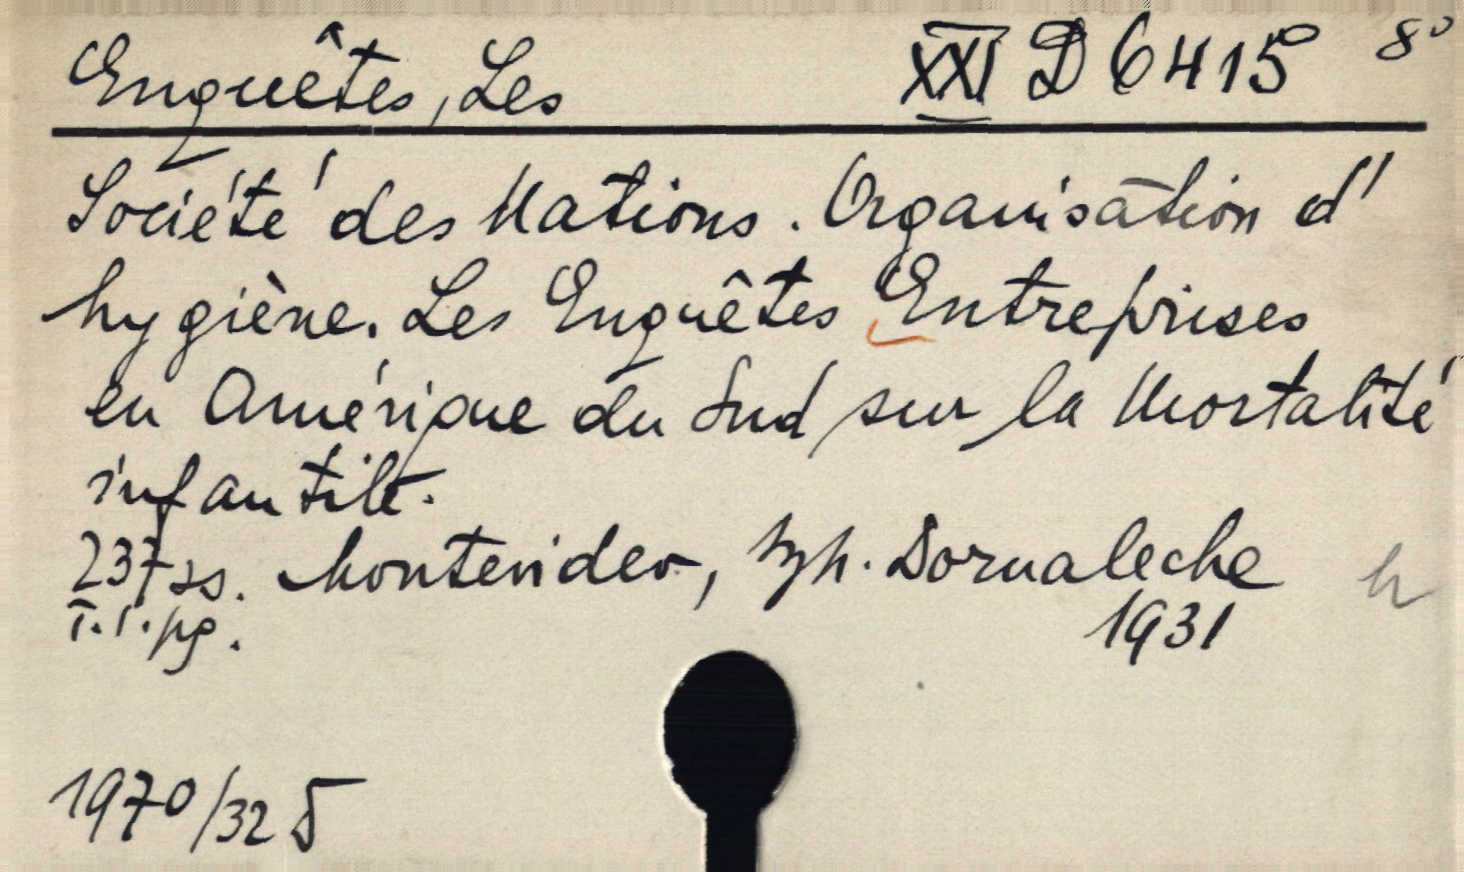 Enquêtes, Les XXI D 6415 8°
Société des Nations. Organisation d'
hygiène. Les Enquêtes Entreprises
en Amérique du Sud sur la Mortalité
infantile.
237 ss. Montevideo, Typ. Dornaleche h
T.1.pg. 1931
1970/325